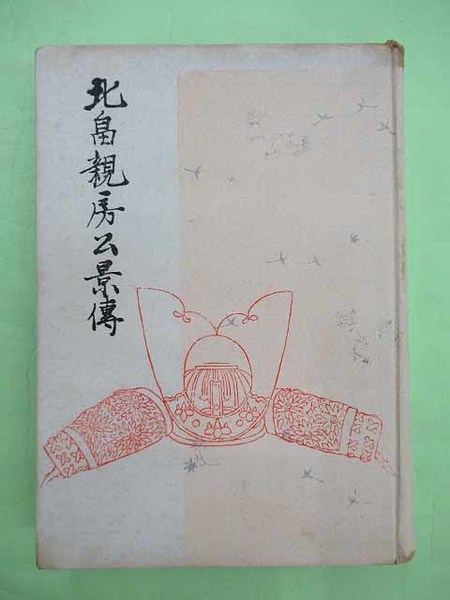 北畠親房公景傳